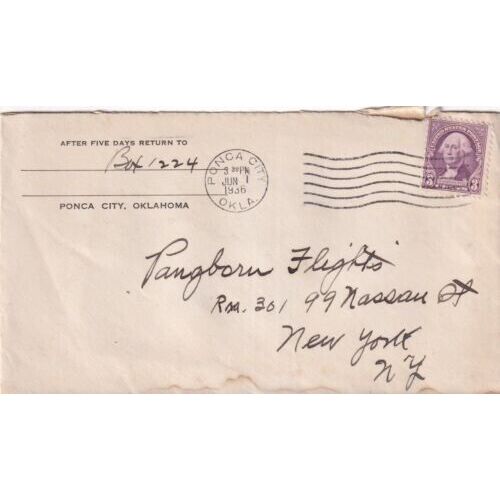 AFTER FIVE DAYS RETURN TO
Box 1224
PONCA CITY, OKLAHOMA
PONCA CITY
3 PM
JUN 1
1936
OKLA.
UNITED STATES POSTAGE
3 3
Pangborn Flights
Rm. 301 99 Nassau St
New York
NY